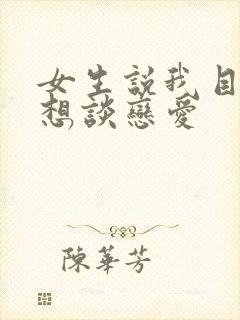 女生説我目
想談戀愛
陳華芳